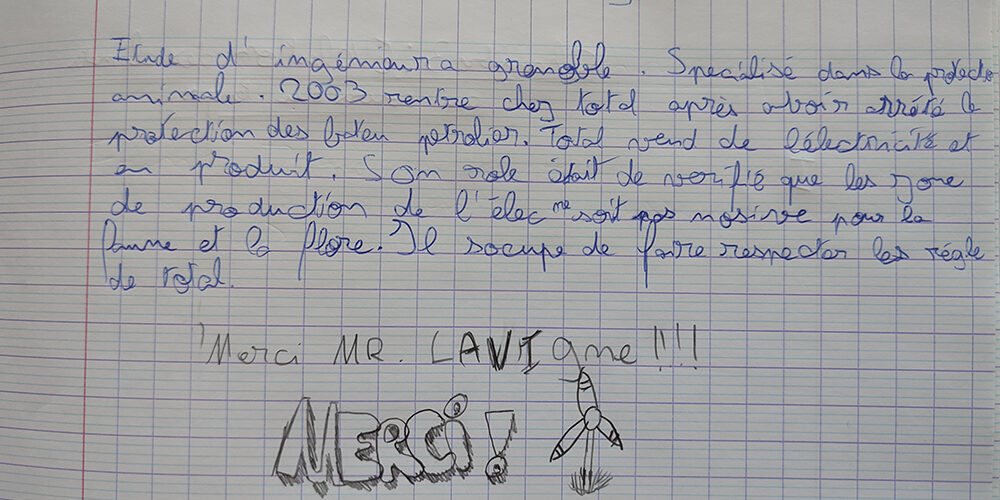 Etude d'ingénieur a grenoble. Specialisé dans la protectio
animale. 2003 rentre chez total après avoir arrété la
protection des bateu petrolier. Total vend de l'électricité et
en produit. Som role était de verifié que les zone
de production de l'élec ne soit pas nosive pour la
faune et la flore. Il socupe de faire respecter les régle
de total.
Merci MR. LAVIgne!!!!
MERCI!